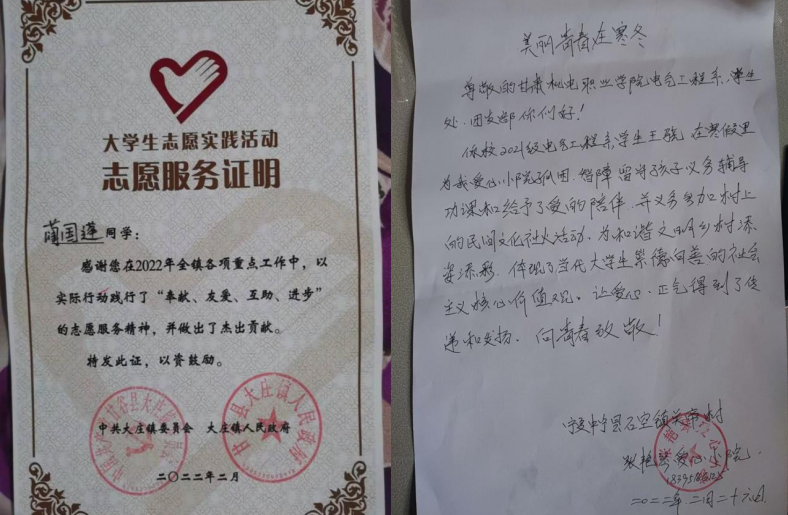 大学生志愿实践活动
志愿服务证明
蔺国莲 同学：
感谢您在2022年全镇各项重点工作中，以
实际行动践行了“奉献、友爱、互助、进步”
的志愿服务精神，并做出了杰出贡献。
特发此证，以资鼓励。
中共大庄镇委员会 大庄镇人民政府
甘谷县大庄镇人民政府
二〇二二年二月
美丽青春在寒冬
尊敬的甘肃机电职业学院电气工程系、学生
处、团支部你们好！
你校2021级电气工程系学生王骁 在寒假里
为我爱心小院孤困、智障、留守孩子义务辅导
功课和给予了爱的陪伴，并义务参加村上
的民间文化社火活动，为和谐文明乡村添
姿添彩，体现了当代大学生崇德向善的社会
主义核心价值观。让爱心、正气得到了传
递和发扬，向青春致敬！
中宁县石空镇关帝村
爱心小院
二〇二二年二月二十六日